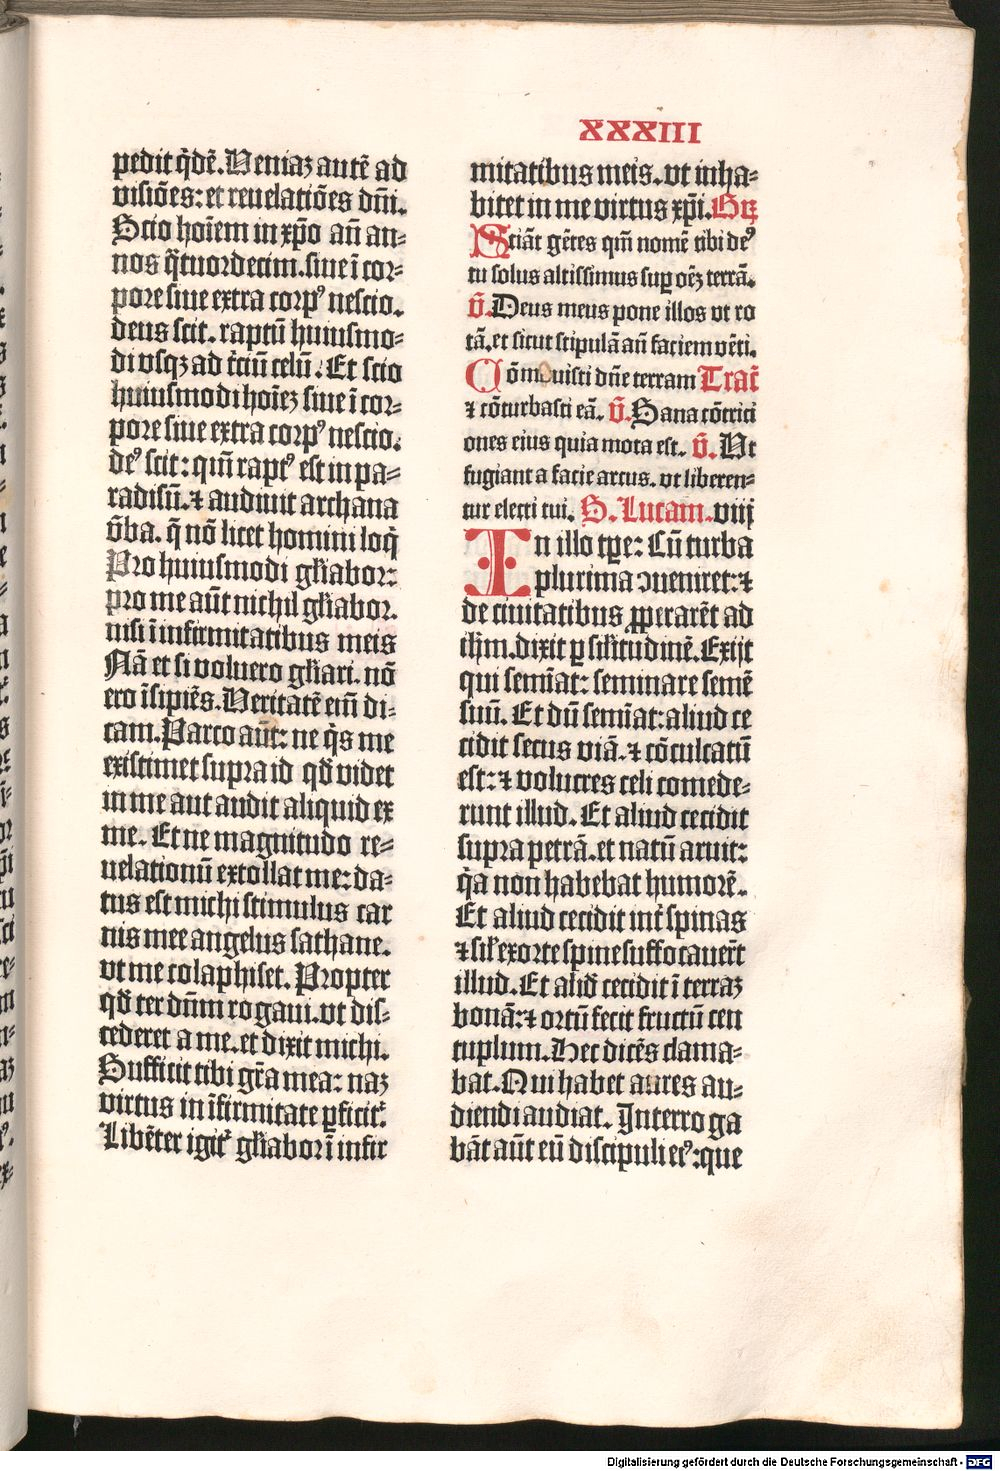 XXXIII
pedit q̄dē. Ueniaʒ autē ad
visiōes: et reuelatiōes dn̄i.
Scio hoīem in xp̄o an̄ an-
nos q̄tuordecim. siue ī cor-
pore siue extra corpꝰ nescio.
deus scit. raptū huiusmo-
di vsqʒ ad t̄ciū celū. Et scio
huiusmodi hoīeʒ siue ī cor-
pore siue extra corpꝰ nescio.
deꝰ scit: qm̄ raptꝰ est in pa-
radisū. ⁊ audiuit archana
v̄ba. q̄ nō licet homini loq̄
Pro huiusmodi gl̄iabor:
pro me aūt nichil gl̄iabor.
nisi ī infirmitatibus meis
Nā et si voluero gl̄iari. nō
ero īsipiēs. Ueritatē em̄ di-
cam. Parco aūt: ne q̄s me
existimet supra id qd̄ videt
in me aut audit aliquid ex
me. Et ne magnitudo re-
uelationū extollat me: da-
tus est michi stimulus car
nis mee angelus sathane.
vt me colaphiset. Propter
qd̄ ter dn̄m rogaui. vt dis-
cederet a me. et dixit michi.
Sufficit tibi gr̄a mea: naʒ
virtus in īfirmitate ꝑficit᷑.
Libēter igit᷑ gl̄iabor ī infir
mitatibus meis. vt inha-
bitet in me virtus xp̄i. Grꝫ
Sciāt gētes qm̄ nomē tibi deꝰ
tu solus altissimus suꝑ oēʒ terrā.
v̄. Deus meus pone illos vt ro
tā. et sicut stipulā an̄ faciem vēti.
Cōmouisti dn̄e terram Tract᷑
⁊ cōturbasti eā. v̄. Sana cōtriti
ones eius quia mota est. v̄. Ut
fugiant a facie arcus. vt liberen-
tur electi tui. S. Lucam. viij
In illo tp̄e: Cū turba
plurima ꝯueniret: ⁊
de ciuitatibus ꝓperarēt ad
ih̄m. dixit ꝑ sil̄itudinē. Exijt
qui semīat: seminare semē
suū. Et dū semīat: aliud ce
cidit secus viā. ⁊ cōculcatū
est: ⁊ volucres celi comede-
runt illud. Et aliud cecidit
supra petrā. et natū aruit:
q̄a non habebat humorē.
Et aliud cecidit int᷑ spinas
⁊ sil̄ exorte spine suffocauer̄t
illud. Et alid̄ cecidit ī terraʒ
bonā: ⁊ ortū fecit fructū cen
tuplum. Hec dicēs clama-
bat. Qui habet aures au-
diendi audiat. Interroga
bāt aūt eū discipuli eꝰ: que
Digitalisierung gefördert durch die Deutsche Forschungsgemeinschaft - DFG